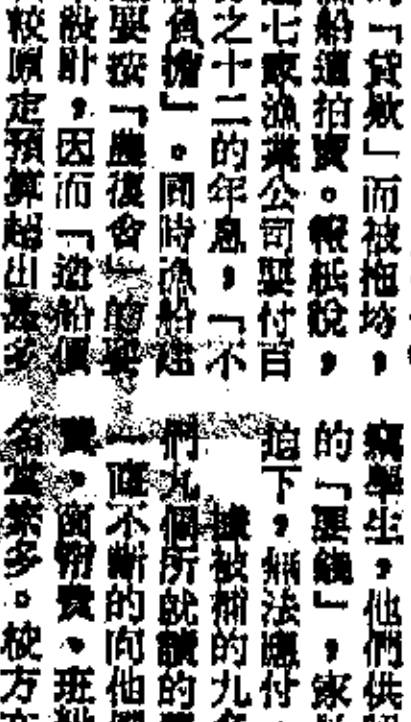 「貸款」而被拖垮，
船遭拍賣。報紙說，
七家漁業公司要付百
之十二的年息，「不
負擔」。同時漁船建
要按「農復會」的要
計，因而「造船價
較原定預算超出甚多
學生，他們供
的「要錢」，家
迫下，無法應付
據被捕的九
們九個所就讀的
一直不斷的向他們
費、費、班
名堂繁多。校方